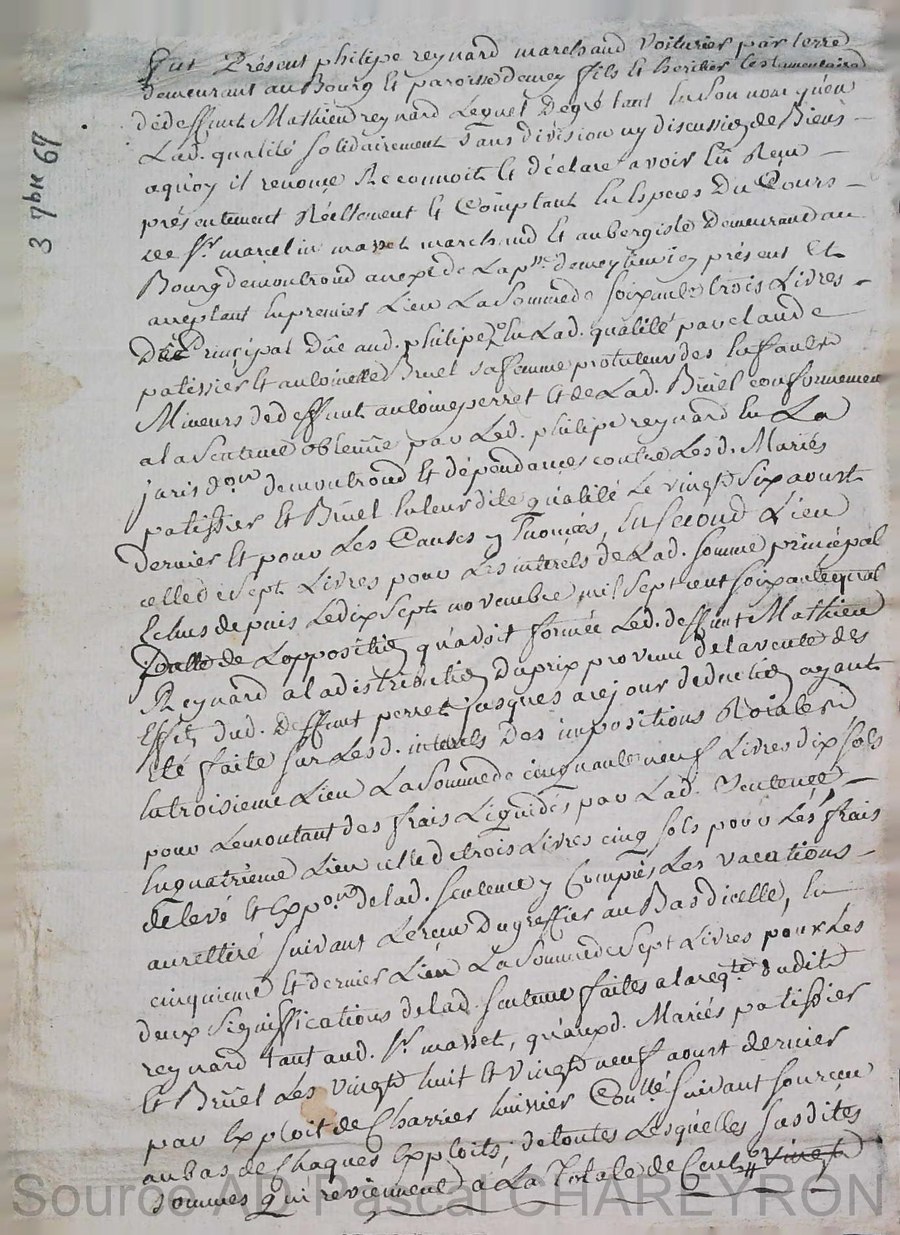 3 7bre 67
Fut Présent philipe reynard marchand Voiturier par terre
demeurant au Bourg et paroisse demey fils et héritier testamentaire
dedeffunt Mathieu reynard Lequel Degré tant En son nom qu'en
Lad. qualité solidairement sans division ny discussion de Biens
aquoy il renonce Reconnoit et déclare avoir Eü Reçu
présentement Réellement et Comptant En Espèces Du Cours
de Sr. marcelin masset marchand et aubergiste Demeurand au
Bourg demontroud annexe de La psse. demey icy présent Et
acceptant En premier Lieu La Somme de soixante trois Livres
Düe Principal Düe aud. philipe En Lad. qualité par claude
patissier et antoinette Brüel sa femme protuteurs des Enfants
Mineurs dedeffunt antoine perret et de Lad. Brüel conformement
a la Sentence obtenüe par Led. philipe reynard En La
jurisdon. demontroud et dépendances contre Lesd. Mariés
patissier et Brüel En leur dite qualité Le vingt Six aoust
dernier et pour Les Causes y Enoncées, En second Lieu
celle de sept Livres pour Les intérêts de Lad. somme principal
Echus depuis Le dix Sept novembre mil Sept cent soixante quatre
de L'opposition qu'avoit formée Led. deffunt Mathieu
Reynard a la distribution Du prix provenu de la vente des
Effets dud. Deffunt perret jusques a ce jour deduction ayant
été faite sur Lesd. interets Des impositions Roiales
En troisieme Lieu La Somme de cinquante neuf Livres dix sols
pour Le montant des frais Liquidés par Lad. Sentence
En quatrième Lieu celle de trois Livres cinq sols pour Les frais
de levé et Expon. de lad. sentence y Compris Les vacations
au rettiré suivant Le reçu Du greffier au Bas d'icelle, En
cinquieme et dernier Lieu La Somme de Sept Livres pour Les
deux Significations de lad. sentence faites a la reqte. dudit
reynard tant aud. Sr. masset, qu'auxd. Mariés patissier
et Brüel Les vingt huit et vingt neuf aoust dernier
par Exploit de Charrier huissier suivant son reçu
au bas de Chaques Exploits; de toutes Lesquelles susdites
sommes qui reviennent a La Totale de Cent
Source AD Pascal CHAREYRON